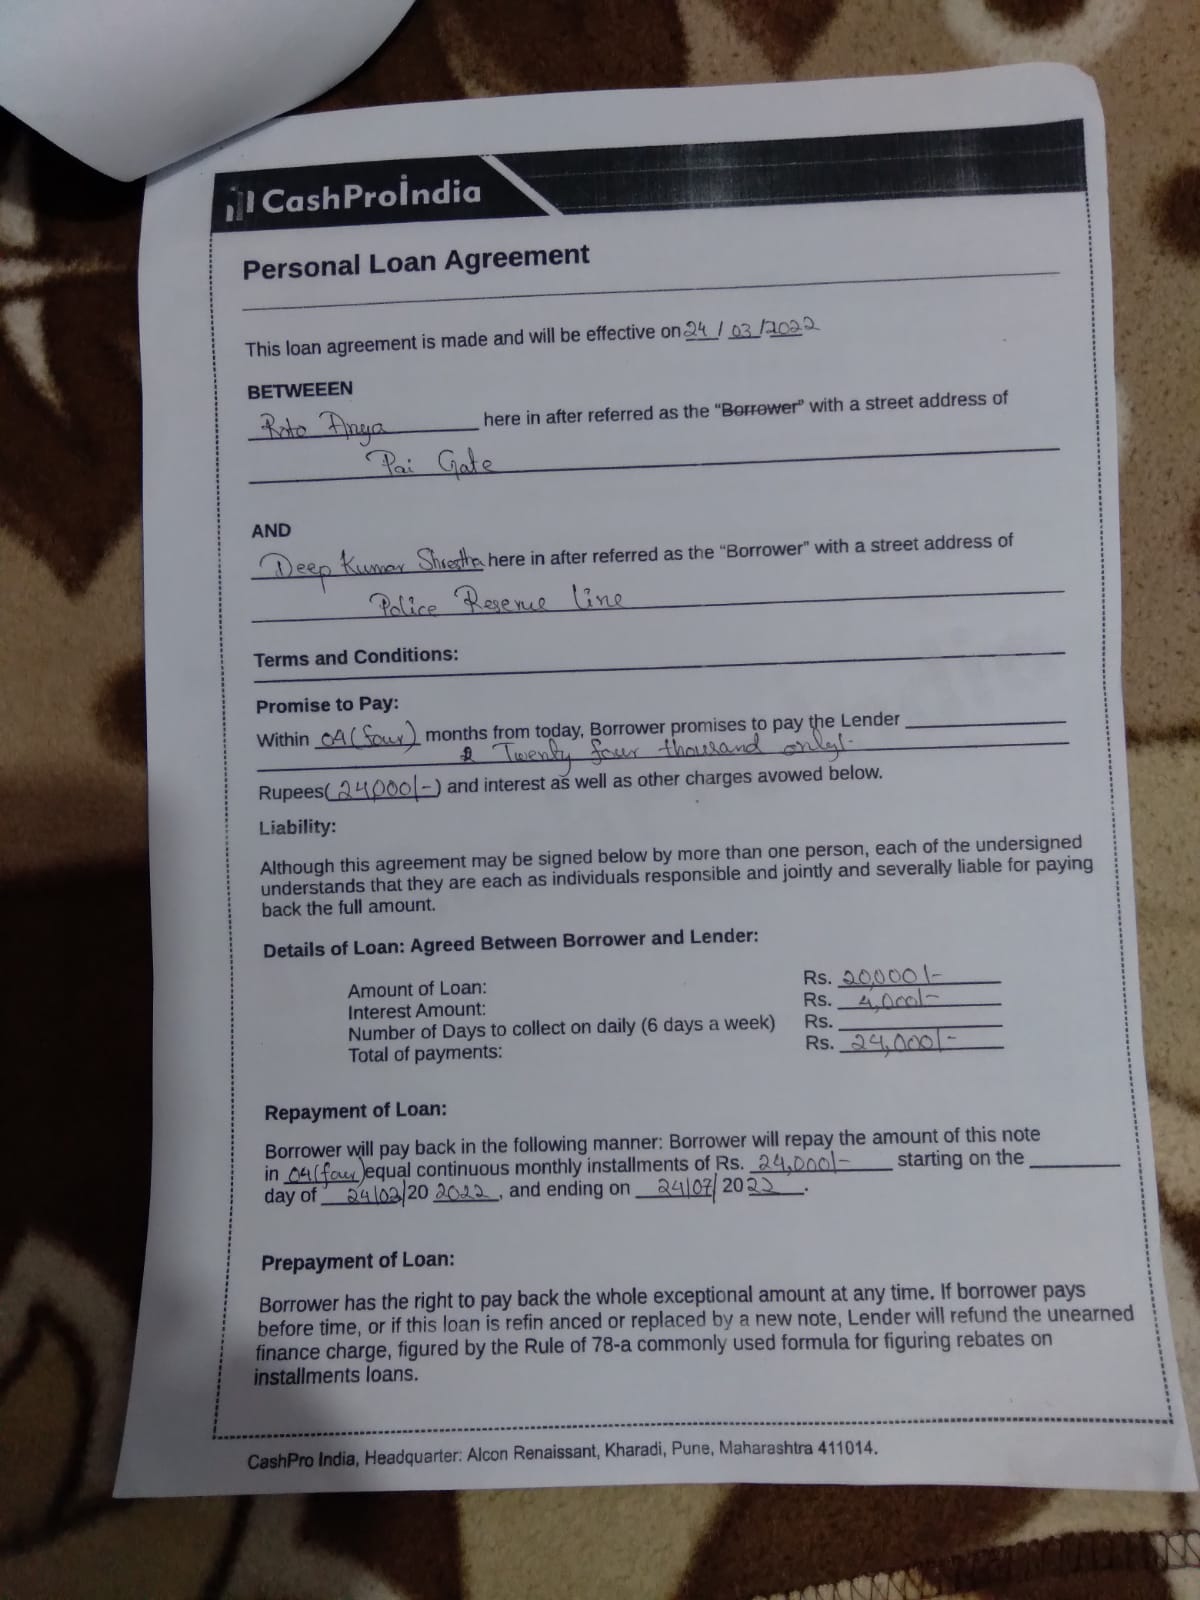 CashProIndia
Personal Loan Agreement
This loan agreement is made and will be effective on 24 / 03 / 2022
BETWEEEN
Anya here in after referred as the “Borrower” with a street address of
Pai Gate
AND
Deep Kumar Shrestha here in after referred as the “Borrower” with a street address of
Police Reserve line
Terms and Conditions:
Promise to Pay:
Within 04 (four) months from today, Borrower promises to pay the Lender
Twenty four thousand only/-
Rupees( 24,000/- ) and interest as well as other charges avowed below.
Liability:
Although this agreement may be signed below by more than one person, each of the undersigned
understands that they are each as individuals responsible and jointly and severally liable for paying
back the full amount.
Details of Loan: Agreed Between Borrower and Lender:
Amount of Loan: Rs. 20,000/-
Interest Amount: Rs. 4,000/-
Number of Days to collect on daily (6 days a week) Rs.
Total of payments: Rs. 24,000/-
Repayment of Loan:
Borrower will pay back in the following manner: Borrower will repay the amount of this note
in 04 (four) equal continuous monthly installments of Rs. 24,000/- starting on the
day of 24/03/20 2022, and ending on 24/07/ 2022.
Prepayment of Loan:
Borrower has the right to pay back the whole exceptional amount at any time. If borrower pays
before time, or if this loan is refin anced or replaced by a new note, Lender will refund the unearned
finance charge, figured by the Rule of 78-a commonly used formula for figuring rebates on
installments loans.
CashPro India, Headquarter: Alcon Renaissant, Kharadi, Pune, Maharashtra 411014.